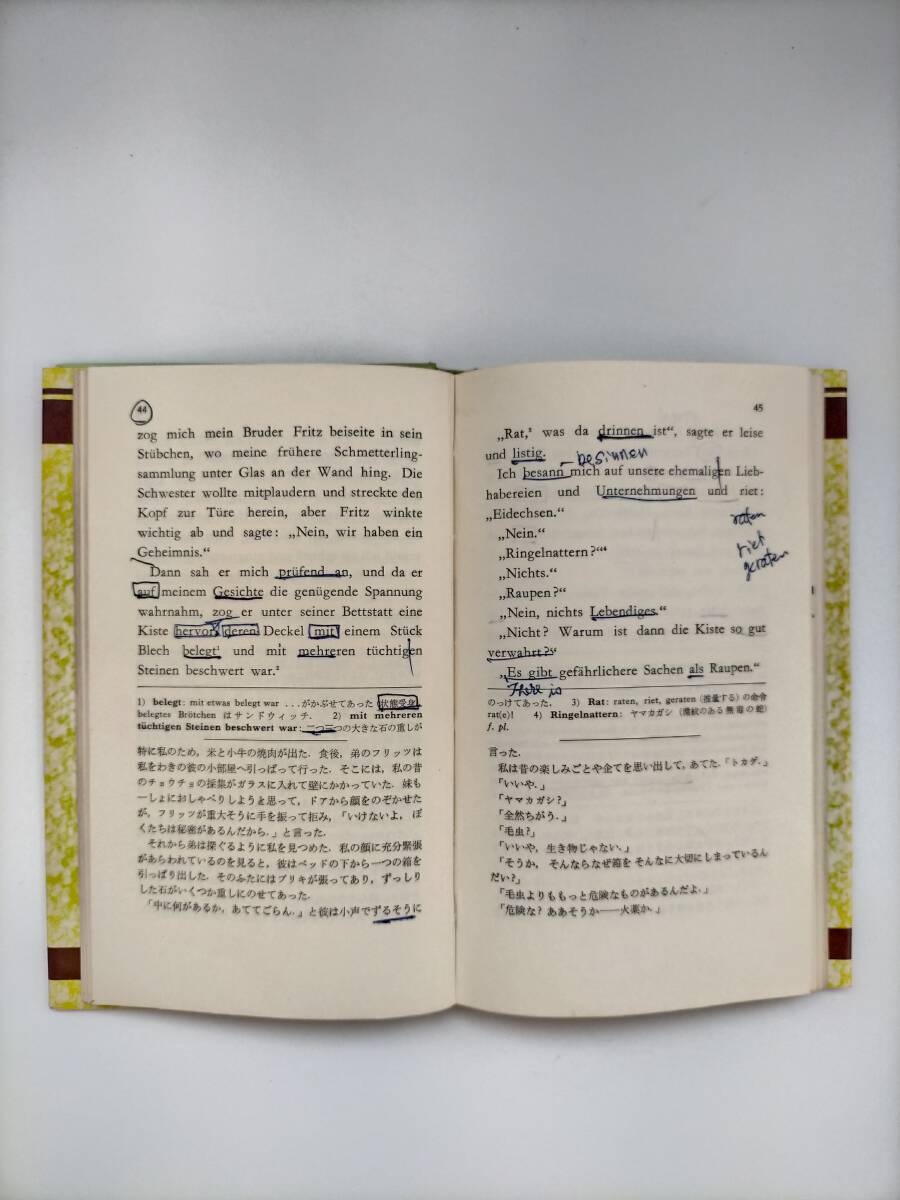 44
zog mich mein Bruder Fritz beiseite in sein
Stübchen, wo meine frühere Schmetterling-
sammlung unter Glas an der Wand hing. Die
Schwester wollte mitplaudern und streckte den
Kopf zur Türe herein, aber Fritz winkte
wichtig ab und sagte: „Nein, wir haben ein
Geheimnis.“
Dann sah er mich prüfend an, und da er
auf meinem Gesichte die genügende Spannung
wahrnahm, zog er unter seiner Bettstatt eine
Kiste hervor, deren Deckel mit einem Stück
Blech belegt¹ und mit mehreren tüchtigen
Steinen beschwert war.²
1) belegt: mit etwas belegt war ...がかぶせてあった 状態受身
belegtes Brötchen はサンドウィッチ. 2) mit mehreren
tüchtigen Steinen beschwert war: 二つ三つの大きな石の重しが
特に私のため，米と小牛の焼肉が出た．食後，弟のフリッツは
私をわきの彼の小部屋へ引っぱって行った．そこには，私の昔
のチョウチョの採集がガラスに入れて壁にかかっていた．妹も
一しょにおしゃべりしようと思って，ドアから顔をのぞかせた
が，フリッツが重大そうに手を振って拒み，「いけないよ，ぼ
くたちは秘密があるんだから．」と言った．
それから弟は探ぐるように私を見つめた．私の顔に充分緊張
があらわれているのを見ると，彼はベッドの下から一つの箱を
引っぱり出した．そのふたにはブリキが張ってあり，ずっしり
した石がいくつか重しにのせてあった．
「中に何があるか，あててごらん．」と彼は小声でずるそうに
45
„Rat,³ was da drinnen ist“, sagte er leise
und listig.
besinnen
Ich besann mich auf unsere ehemaligen Lieb-
habereien und Unternehmungen und riet:
„Eidechsen.“
raten
„Nein.“
„Ringelnattern?“⁴
riet
geraten
„Nichts.“
„Raupen?“
„Nein, nichts Lebendiges.“
„Nicht? Warum ist dann die Kiste so gut
verwahrt?“
„Es gibt gefährlichere Sachen als Raupen.“
There is
のっけてあった． 3) Rat: raten, riet, geraten (推量する) の命令
rat(e)! 4) Ringelnattern: ヤマカガシ (環紋のある無毒の蛇)
f. pl.
言った．
私は昔の楽しみごとや企てを思い出して，あてた．「トカゲ．」
「いいや．」
「ヤマカガシ？」
「全然ちがう．」
「毛虫？」
「いいや，生き物じゃない．」
「そうか， そんならなぜ箱を そんなに大切にしまっているん
だい？」
「毛虫よりももっと危険なものがあるんだよ．」
「危険な？ ああそうか——火薬か．」